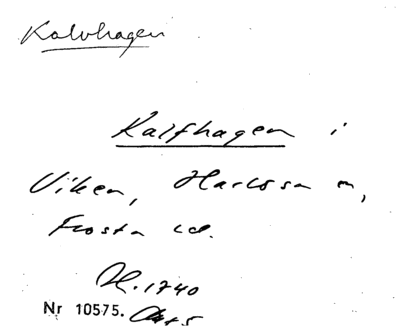 Kalvhagen
Kalfhagen i
Viken, Harlösa sn,
Frosta hd.
H. 1740
Nr 10575. Akt 5